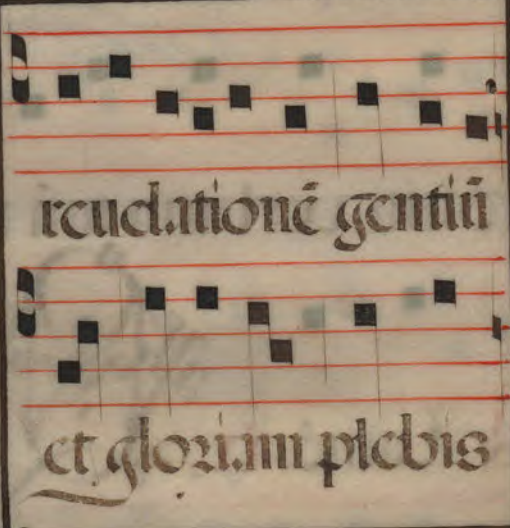 reuelationē gentiū
et gloriam plebis